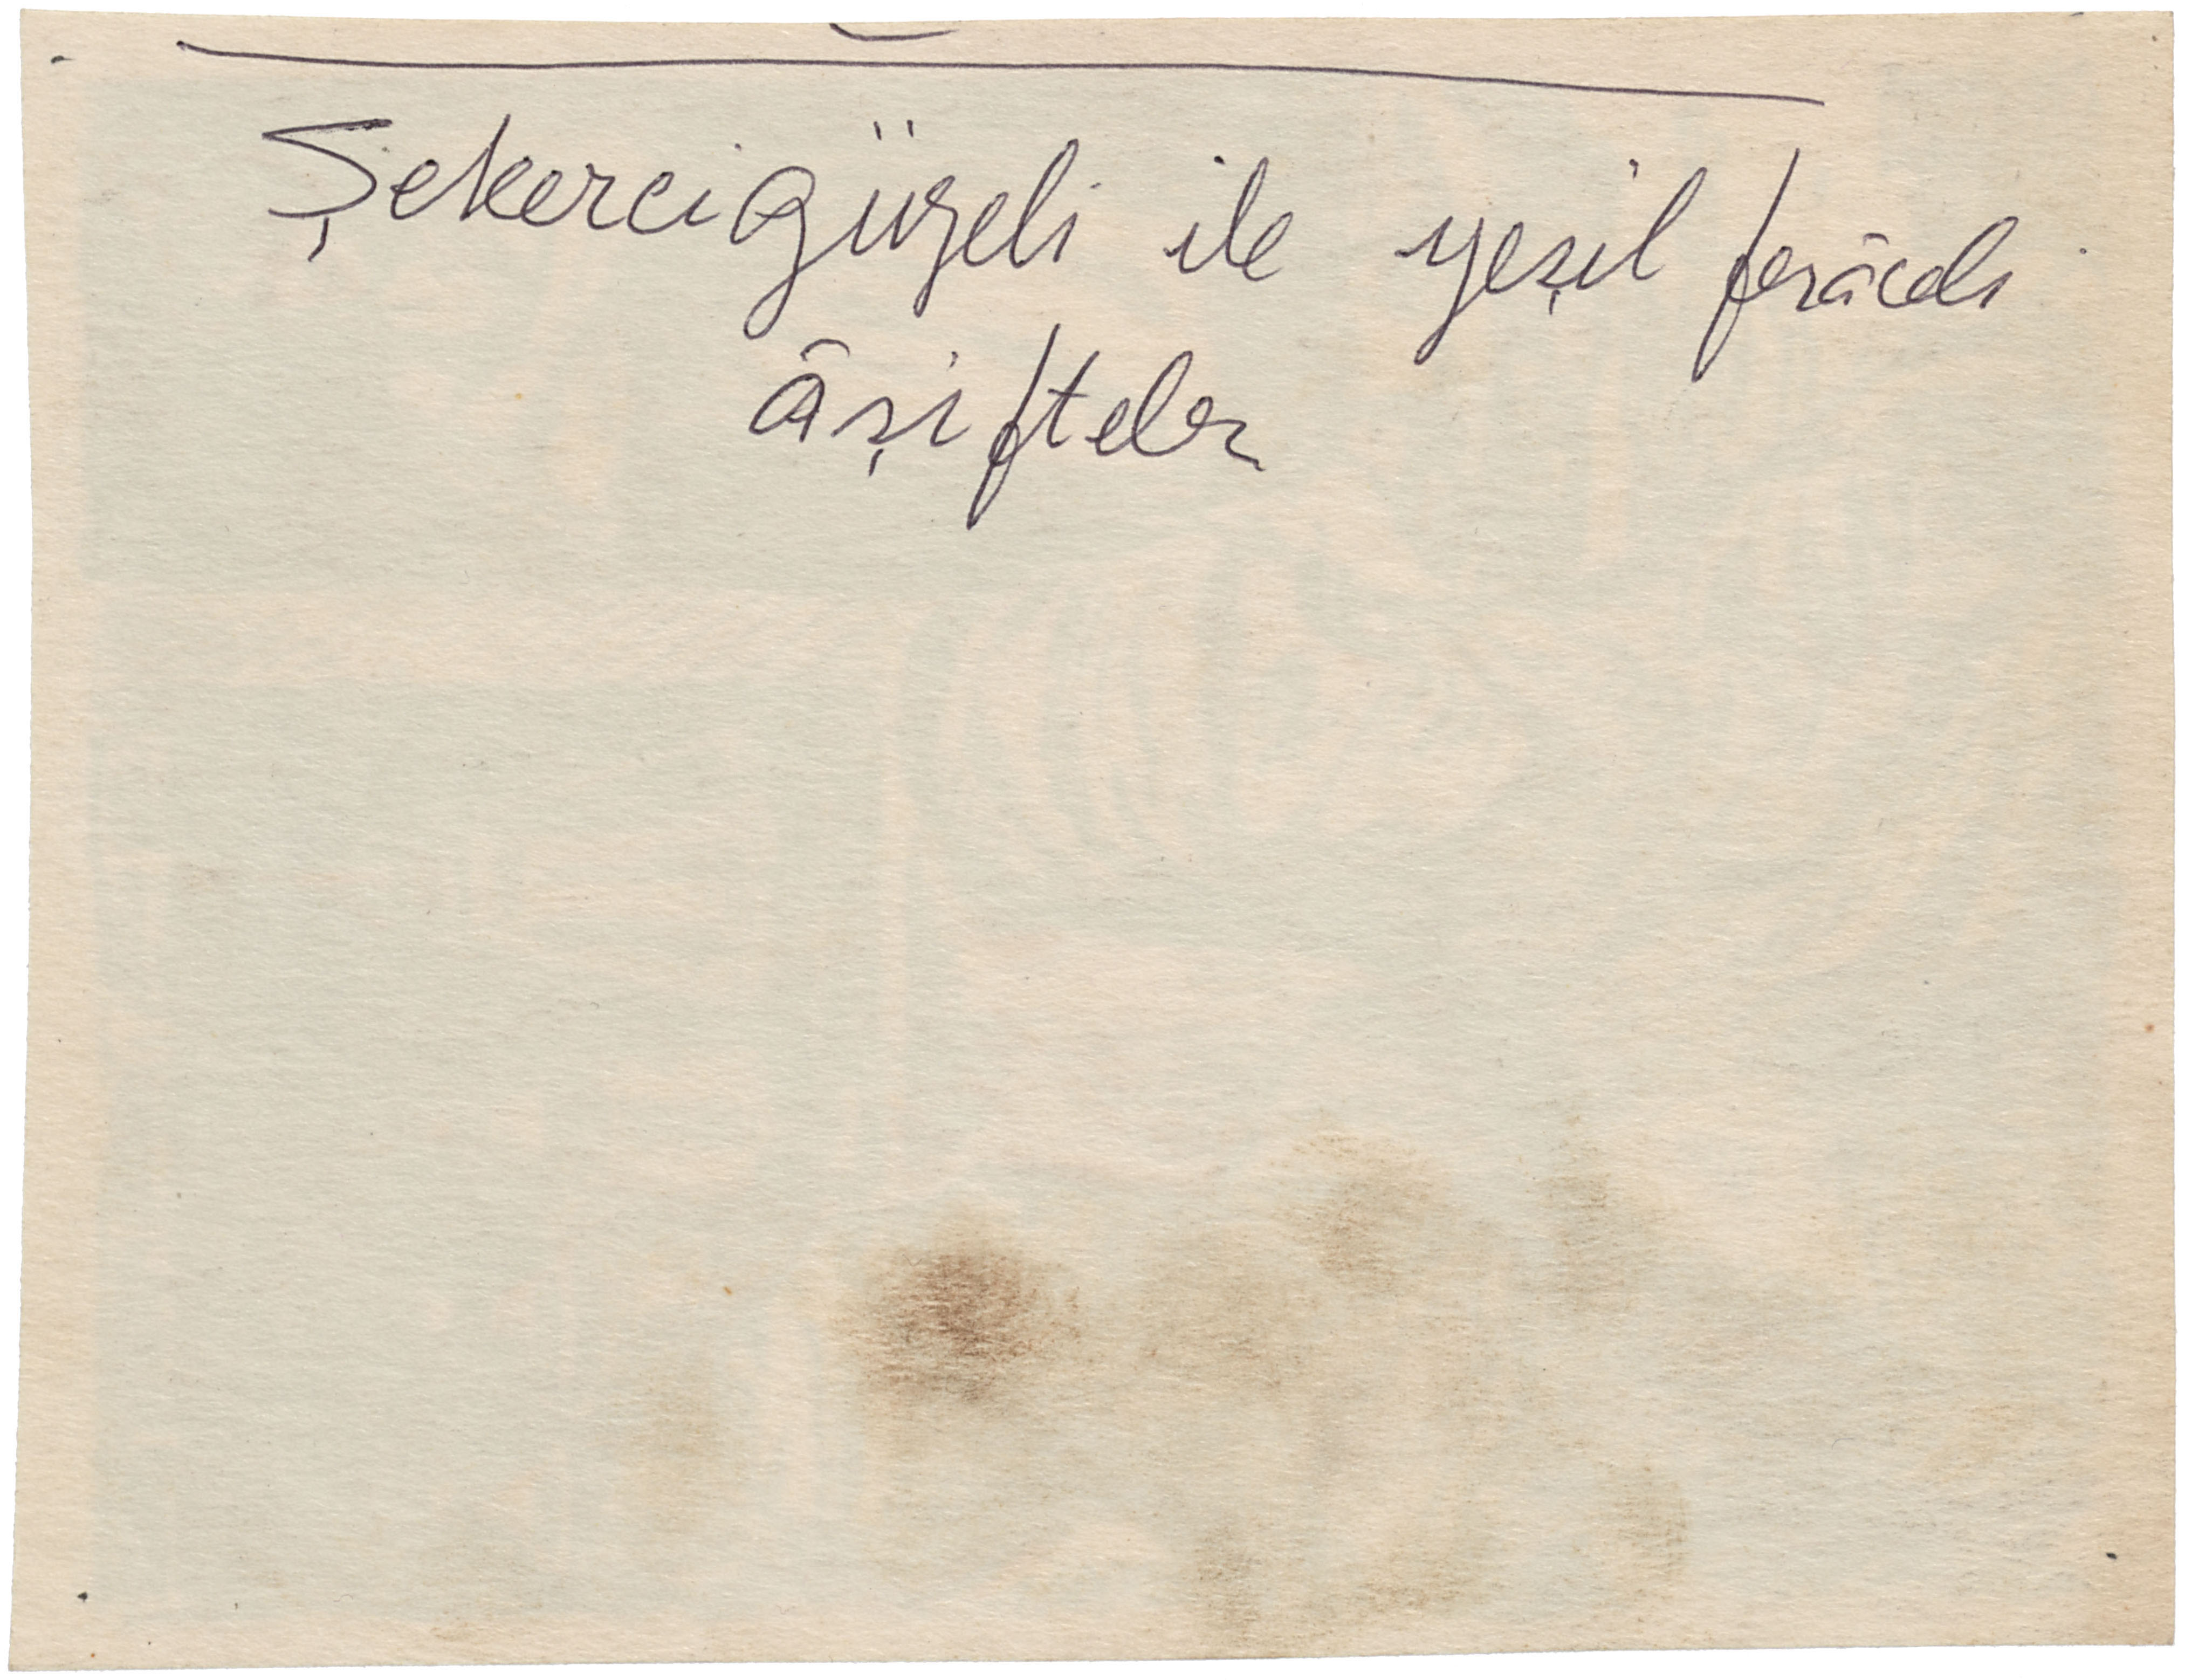 Şekerci güzeli ile yeşil ferâceli
âşifteler